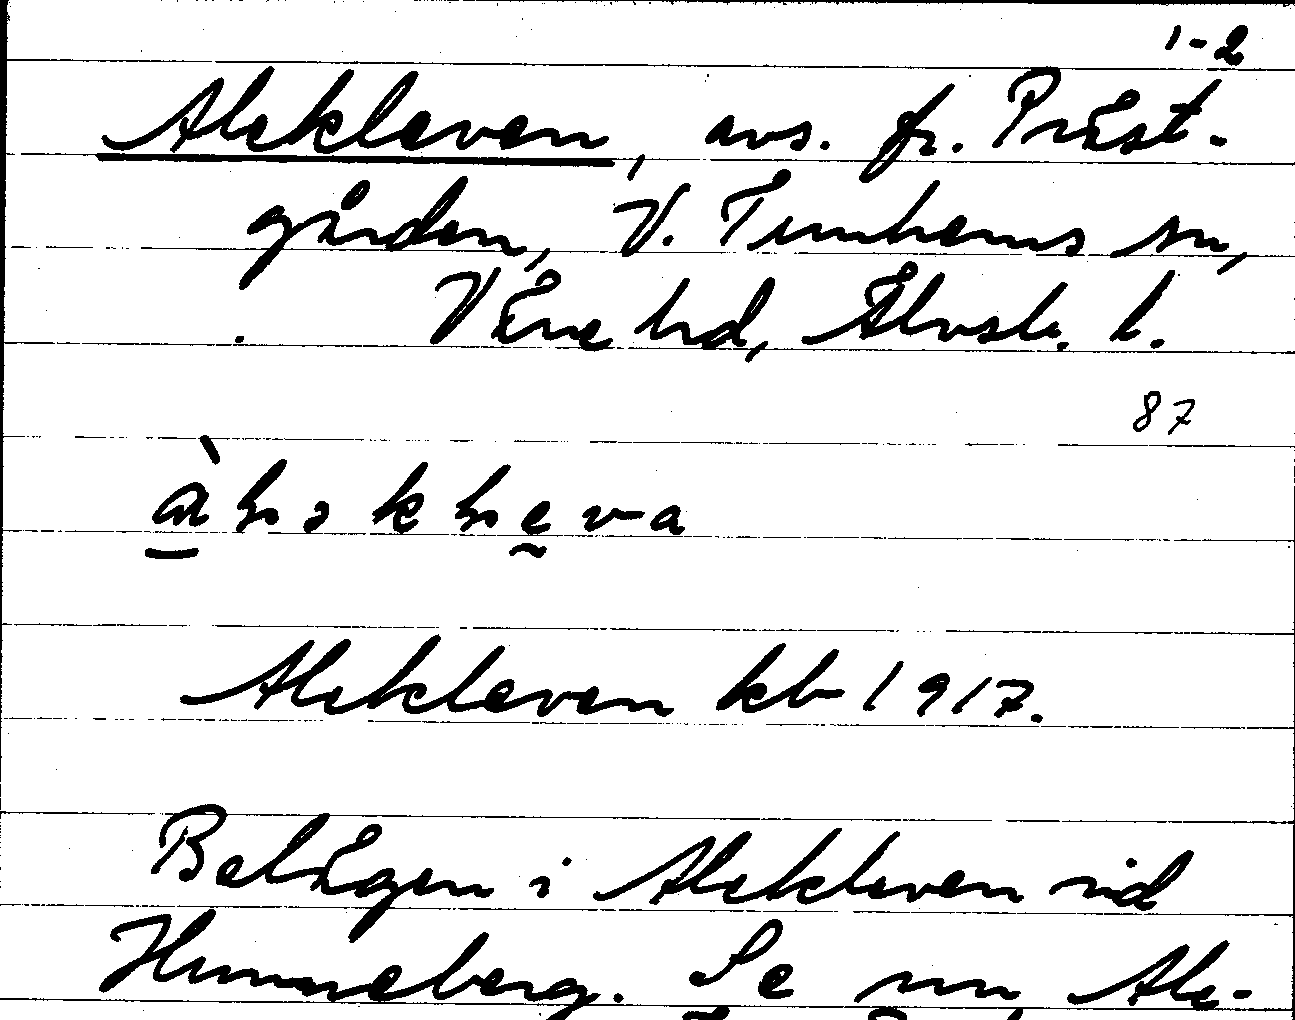 1-2
Alekleven, avs. fr. Präst-
gården, V. Tunhems sn,
Väne hd, Älvsb. l.
87
Alekleven kb 1917.
Belägen i Alekleven vid
Hunneberg. Se nm Ale-